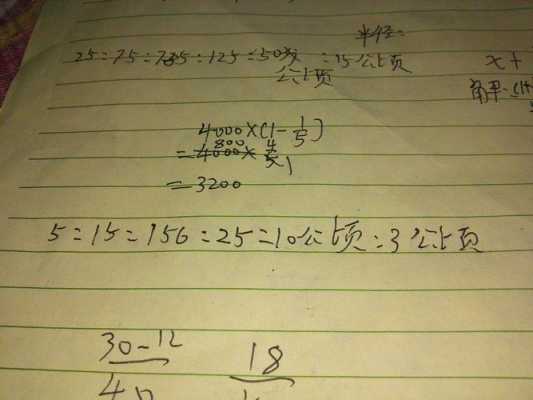 半径:
25:75:735:125:50 :15公顷
公顷
x+
解:
4000×(1-1/5)
=4000×4/5
800 1
=3200
5:15:156:25:10公顷:3公顷
30-12 18